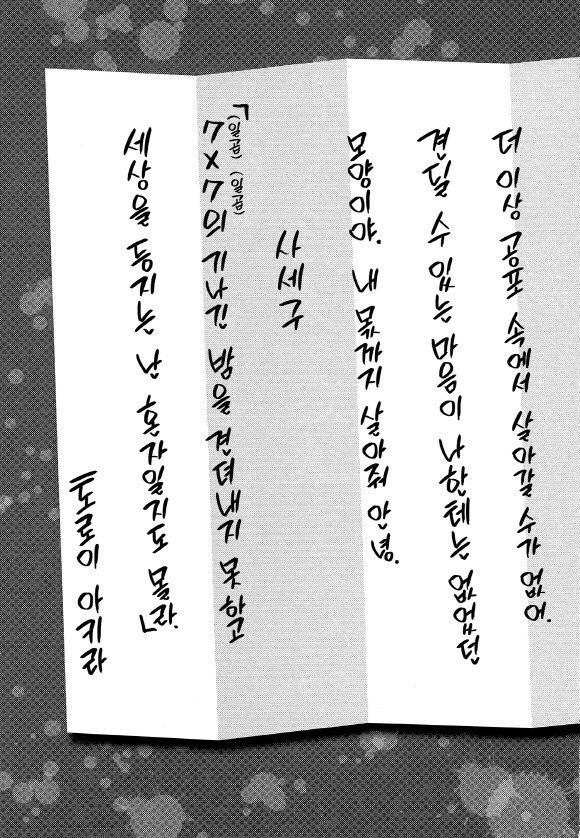 더 이상 공포 속에서 살아갈 수가 없어.
견딜 수 있는 마음이 나한테는 없었던
모양이야. 내 몫까지 살아줘 안녕.
사세구
「7(일곱)×7(일곱)의 기나긴 밤을 견뎌내지 못하고
세상을 등지는 난 혼자일지도 몰라.」
노로이 아키라